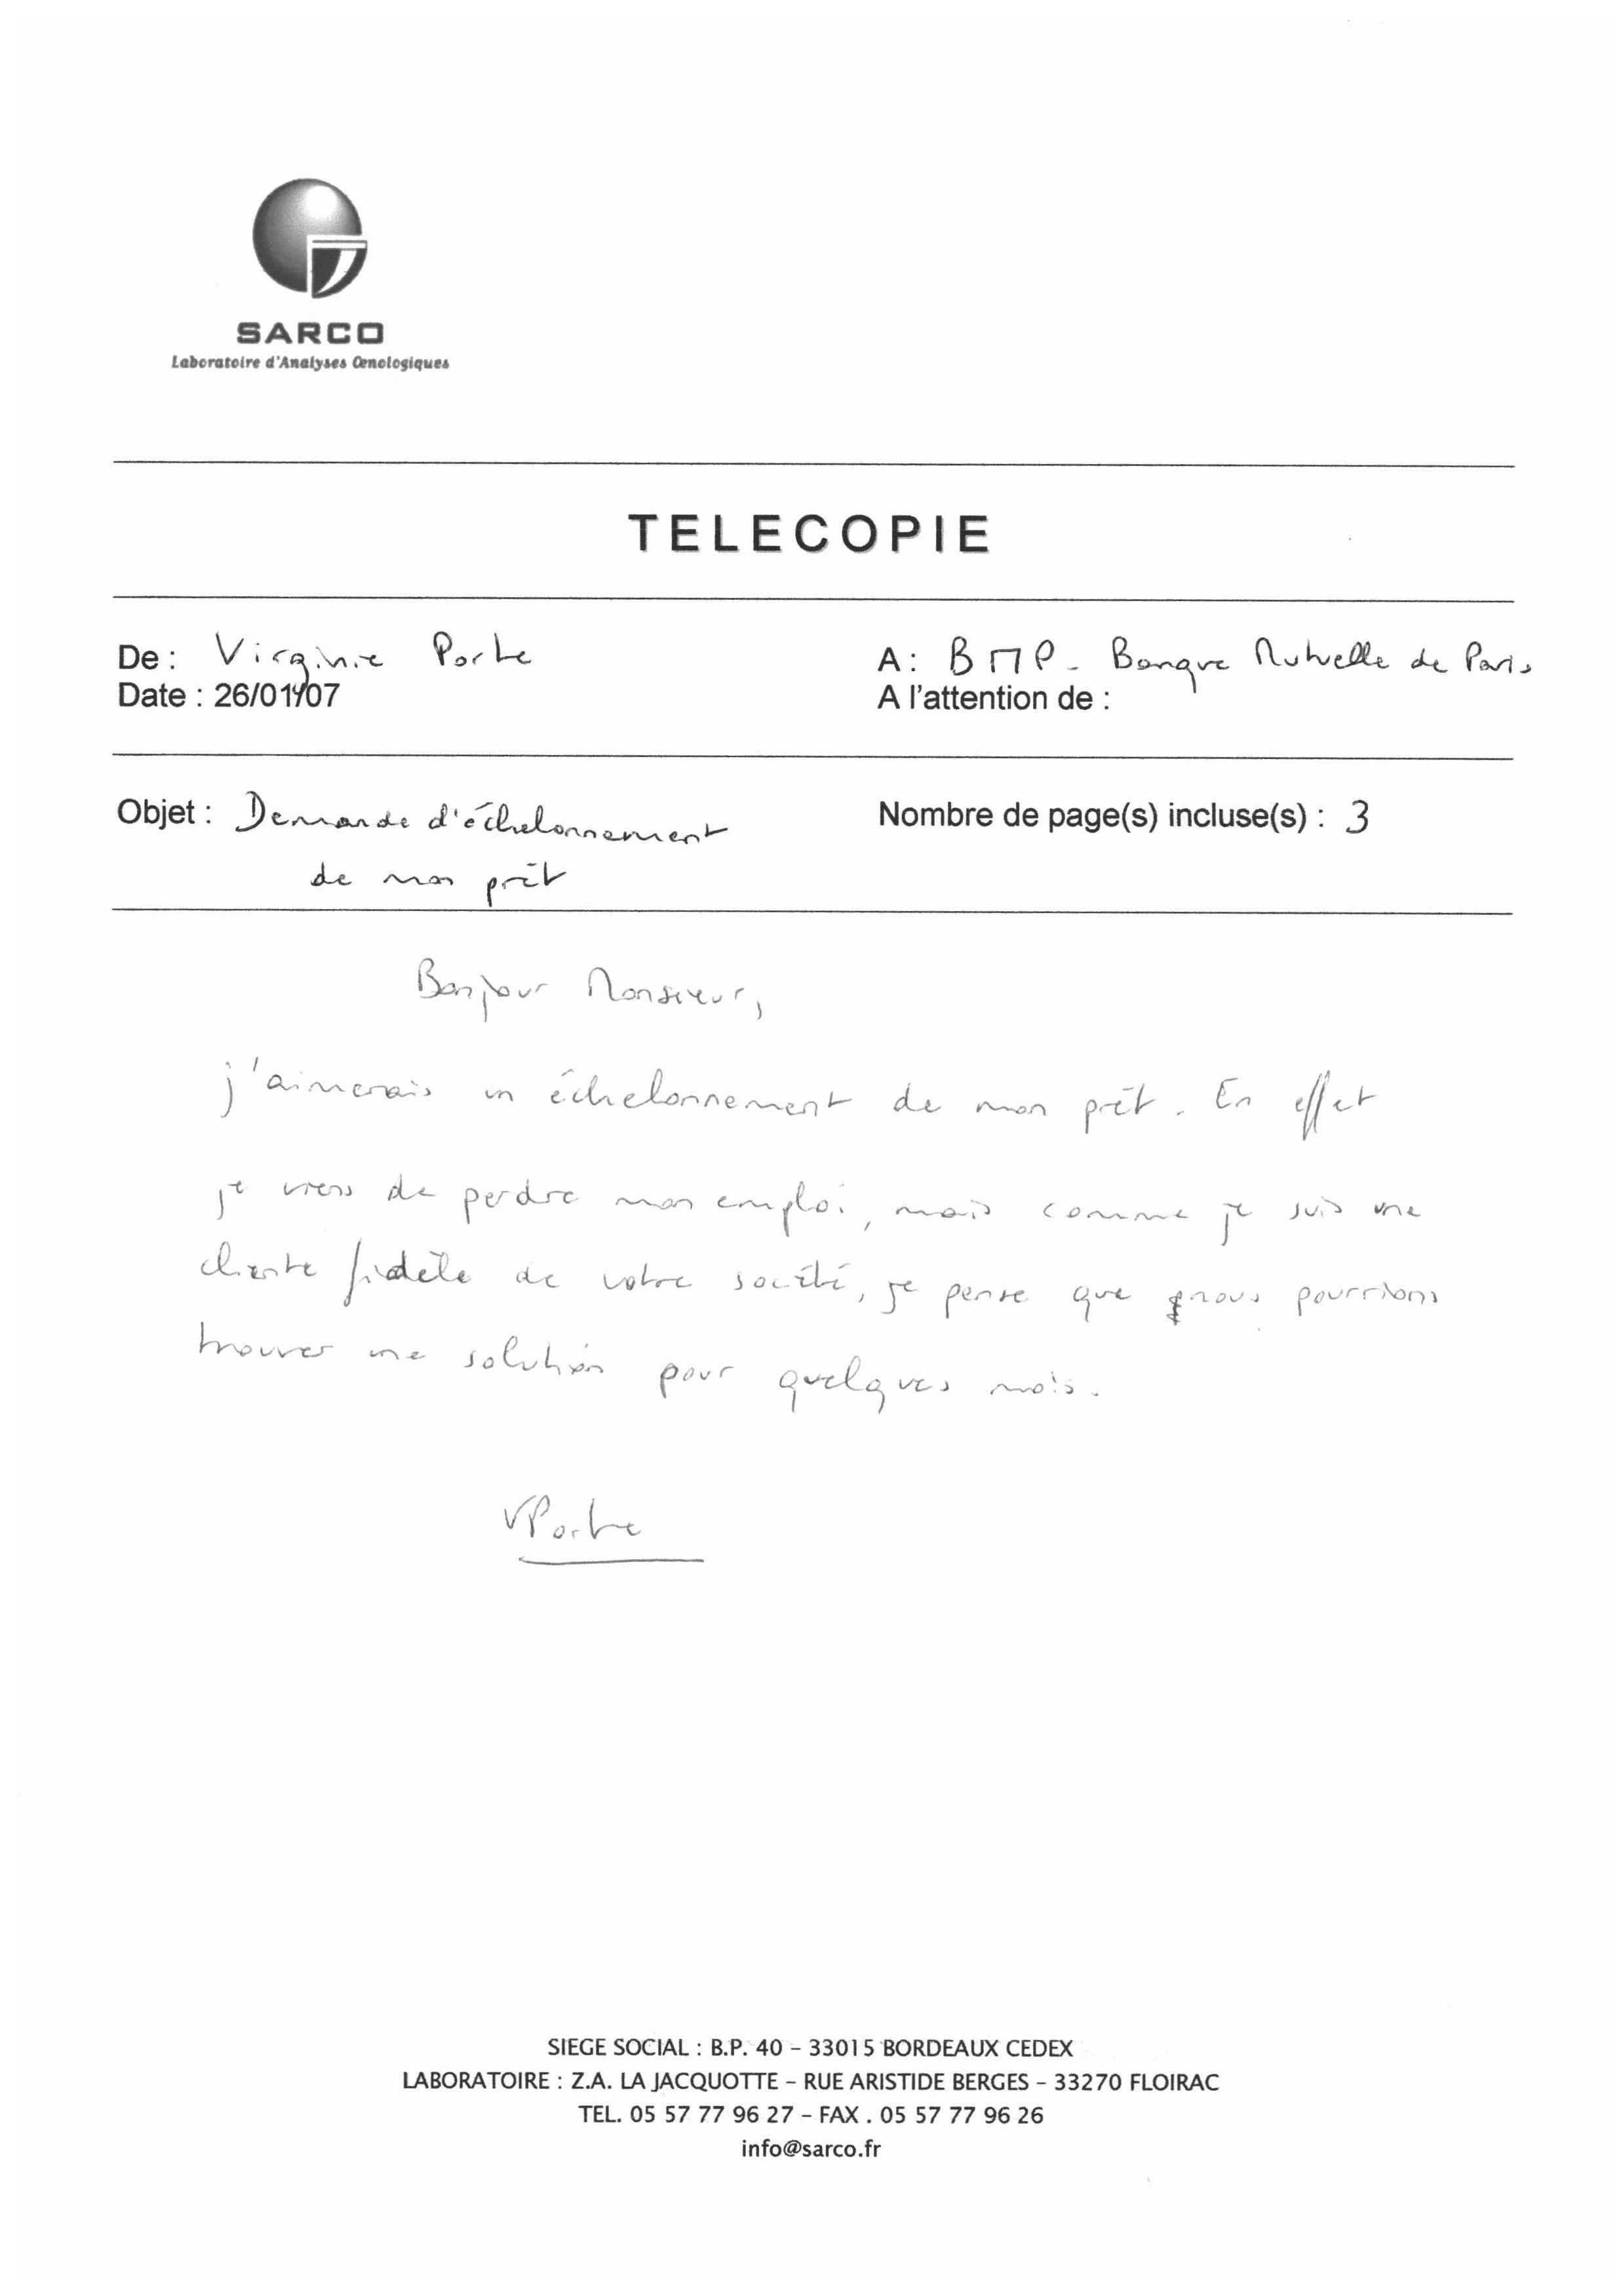 SARCO
Laboratoire d'Analyses Œnologiques
TELECOPIE
De : Virginie Porte
A : BMP - Banque Mutuelle de Paris
Date : 26/01/07
A l'attention de :
Objet : Demande d'échelonnement
de mon prêt
Nombre de page(s) incluse(s) : 3
Bonjour Monsieur,
j'aimerais un échelonnement de mon prêt. En effet
je viens de perdre mon emploi, mais comme je suis une
cliente fidèle de votre société, je pense que nous pourrions
trouver une solution pour quelques mois.
VPorte
SIEGE SOCIAL : B.P. 40 – 33015 BORDEAUX CEDEX
LABORATOIRE : Z.A. LA JACQUOTTE – RUE ARISTIDE BERGES – 33270 FLOIRAC
TEL. 05 57 77 96 27 – FAX . 05 57 77 96 26
info@sarco.fr